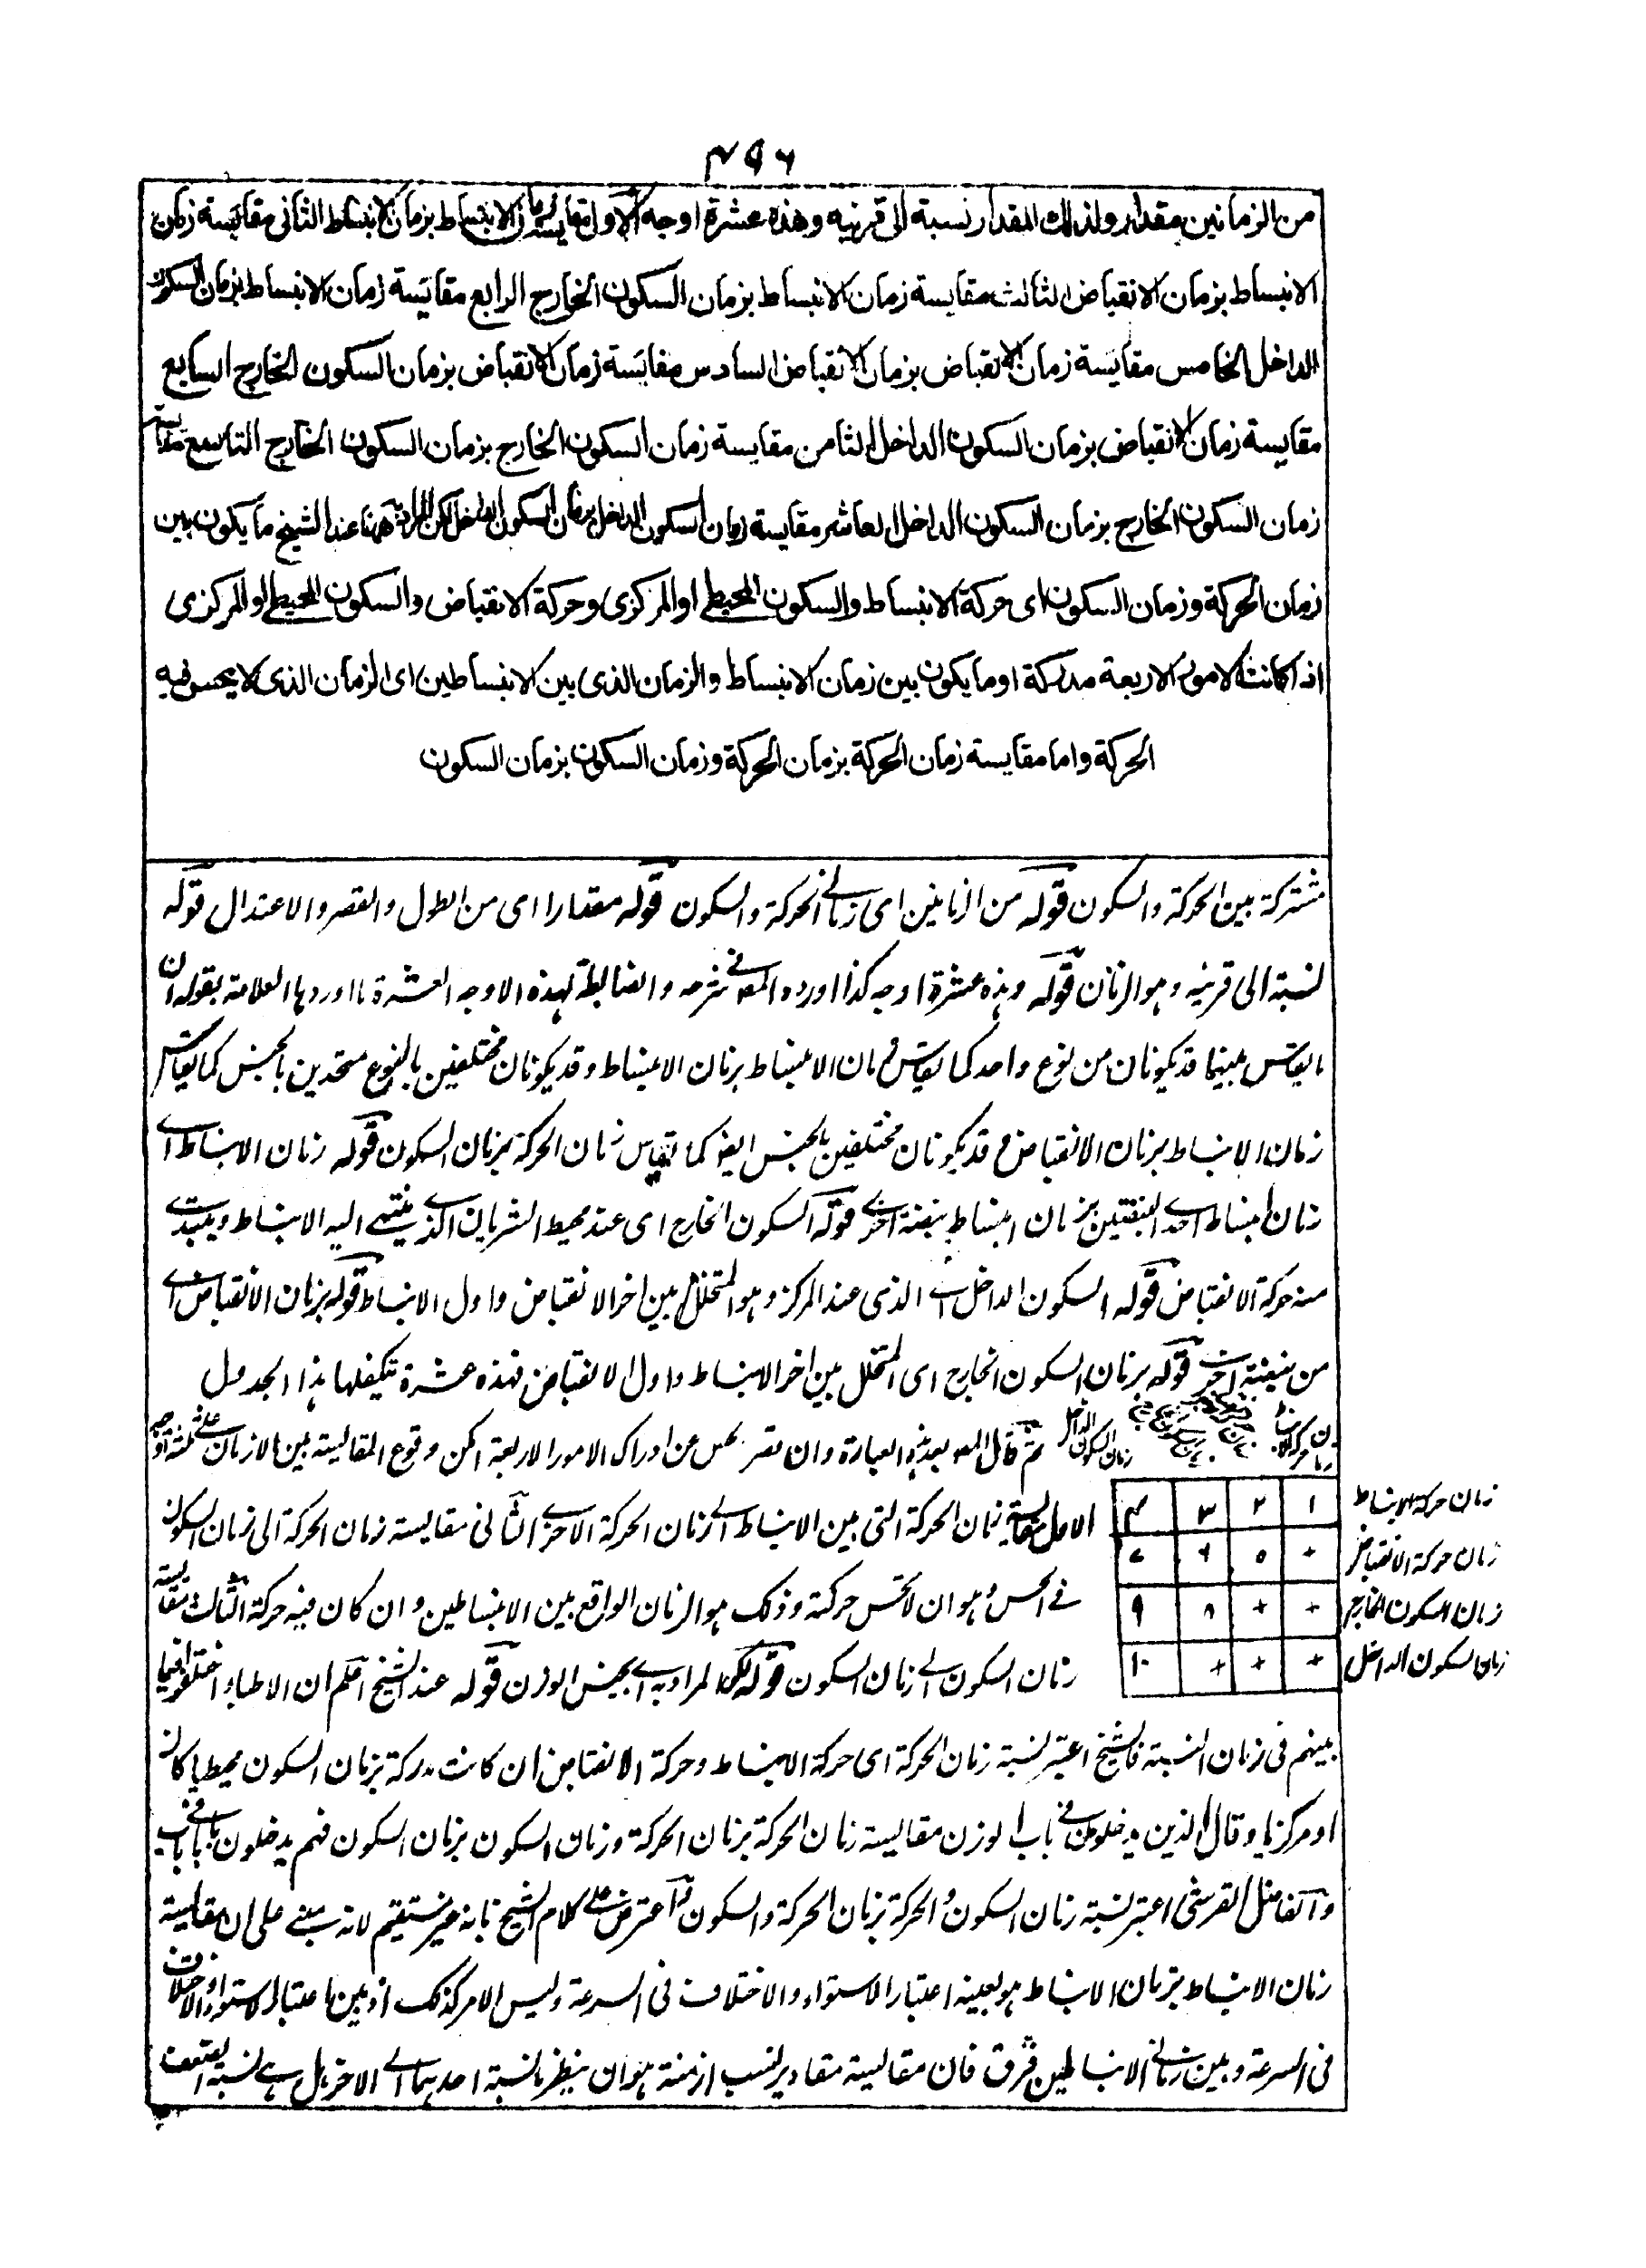 ٤٩٦
من الزمانين مقدار ولذلك المقدار نسبة الى قرينه وهذه عشرة اوجه الاول مقايسة زمان الانبساط بزمان الانبساط الثانى مقايسة زمان
الانبساط بزمان الانقباض الثالث مقايسة زمان الانبساط بزمان السكون الخارج الرابع مقايسة زمان الانبساط بزمان السكون
الداخل الخامس مقايسة زمان الانقباض بزمان الانقباض السادس مقايسة زمان الانقباض بزمان السكون الخارج السابع
مقايسة زمان الانقباض بزمان السكون الداخل الثامن مقايسة زمان السكون الخارج بزمان السكون الخارج التاسع مقايسة
زمان السكون الخارج بزمان السكون الداخل العاشر مقايسة زمان السكون الداخل بزمان السكون الداخل لكن المراد ههنا عند الشيخ ما يكون بين
زمان الحركة وزمان السكون اى حركة الانبساط والسكون المحيطى او المركزى وحركة الانقباض والسكون المحيطى او المركزى
اذا كانت الامور الاربعة مدركة او ما يكون بين زمان الانبساط والزمان الذى بين الانبساطين اى الزمان الذى لا يحس فيه
الحركة واما مقايسة زمان الحركة بزمان الحركة وزمان السكون بزمان السكون
مشتركة بين الحركة والسكون قوله من الزمانين اى زمانے الحركة والسكون قوله مقدارا اى من الطول والقصر والاعتدال قوله
نسبة الى قرينه وهو الزمان قوله وهذه عشرة اوجه كذا اورده المصہ فے شرحہ والضابطة لهذه الاوجه العشرة ما اوردها العلامة بقوله ان
ما يقايس بينهما قد يكونان من نوع واحد كما يقايس زمان الانبساط بزمان الانبساط وقد يكونان مختلفين بالنوع متحدين بالجنس كما يقايس
زمان الانبساط بزمان الانقباض وقد يكونان مختلفين بالجنس ايضا كما يقاس زمان الحركة بزمان السكون قوله زمان الانبساط اے
زمان انبساط احدے النبضتين بزمان انبساط نبضة اخرے قوله السكون الخارج اى عند محيط الشريان الذے ينتهے اليه الانبساط ويبتدے
منه حركة الانقباض قوله السكون الداخل اے الذى عند المركز وهو المتخلل بين اخر الانقباض واول الانبساط قوله بزمان الانقباض اے
من نبضة اخرے قوله بزمان السكون الخارج اى المتخلل بين اخر الانبساط واول الانقباض فهذه عشرة تكفلها هذا الجدول
زمان حركة الانبساط
زمان السكون الداخل
ثم قال المصہ بعد هذه العبارة وان قصر الحس عن ادراك الامور الاربعة امكن وقوع المقايسة بين الازمان علے ثلثة اوجه
زمان حركة الانبساط ١ ٢ ٣ ٤
زمان حركة الانقباض + ٥ ٦ ٧
زمان السكون الخارج + + ٨ ٩
زمان السكون الداخل + + + ١٠
الاول مقايسة زمان الحركة التى بين الانبساط الے زمان الحركة الاخرے الثانى مقايسة زمان الحركة الى زمان السكون
فے الحس وهو ان لا تحس حركته وذلك هو الزمان الواقع بين الانبساطين وان كان فيه حركة الثالث مقايسة
زمان السكون الے زمان السكون قوله لكن المراد به اے بجنس الوزن قوله عند الشيخ اعلم ان الاطباء اختلفوا فيما
بينهم فى زمان النسبة فالشيخ اعتبر نسبة زمان الحركة اى حركة الانبساط وحركة الانقباض ان كانت مدركة بزمان السكون محيطيا كان
او مركزيا وقال الذين يدخلون فے باب الوزن مقايسة زمان الحركة بزمان الحركة وزمان السكون بزمان السكون فهم يدخلون بابا فے باب
والفاضل القرشى اعتبر نسبة زمان السكون والحركة بزمان الحركة والسكون واعترض علے كلام الشيخ بانه غير مستقيم لانه مبنے على ان مقايسة
زمان الانبساط بزمان الانبساط هو بعينه اعتبار الاستواء والاختلاف فى السرعة وليس الامر كذلك اذ بين اعتبار الاستواء والاختلاف
فى السرعة وبين زمانے الانبساطين فرق فان مقايسة مقادير نسب ازمنة هو ان ينظر ما نسبة احدهما الے الاخر هل هے نسبة الضعف